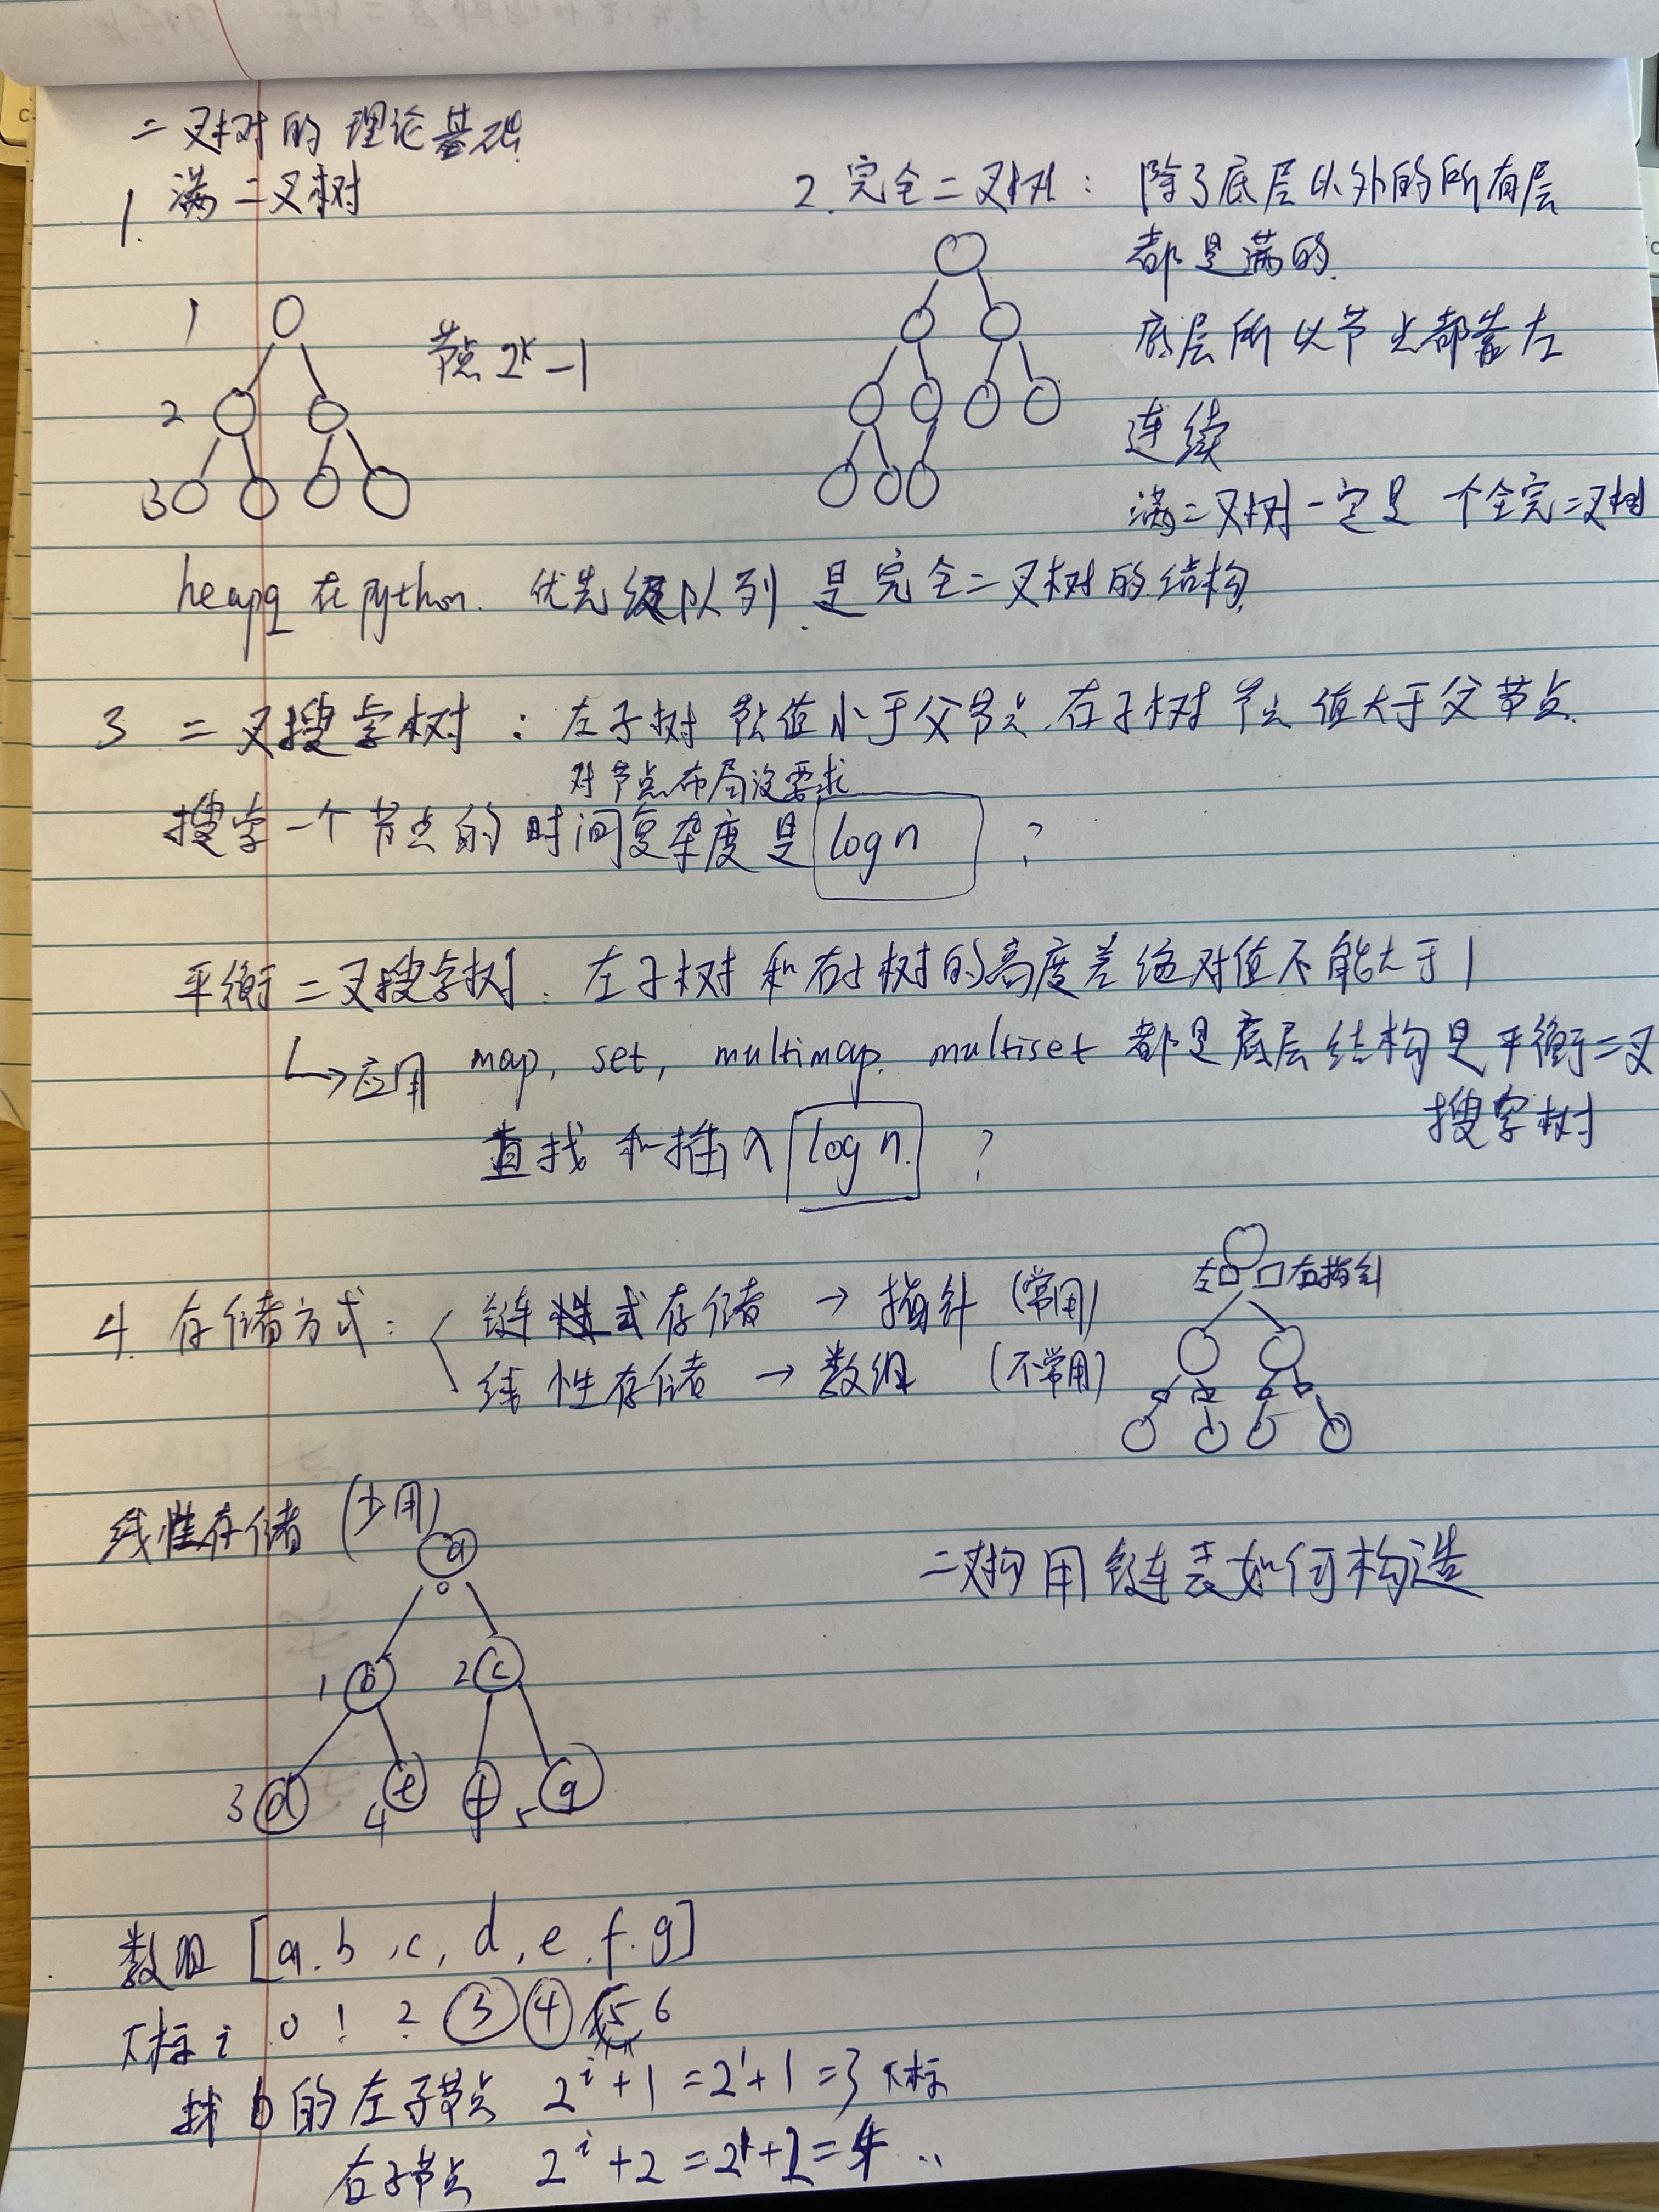 二叉树的理论基础
1. 满二叉树
1
节点 2^k-1
2
3
2. 完全二叉树: 除了底层以外的所有层
都是满的.
底层所以节点都靠左
连续
满二叉树一定是个全完二叉树
heapq 在python. 优先级队列. 是完全二叉树的结构.
3 二叉搜索树: 左子树 节点值小于父节点.右子树 节点 值大于父节点.
对节点布局没要求
搜索一个节点的时间复杂度是 logn ?
平衡二叉搜索树. 左子树和右子树的高度差绝对值不能大于1
↳应用 map, set, multimap. multiset 都是底层结构是平衡二叉
搜索树
查找和插入 log n. ?
左 右指针
4. 存储方式: 链式存储 → 指针 (常用)
线性存储 → 数组 (不常用)
线性存储 (少用)
二叉树用链表如何构造
a
0
1 b 2 c
3 d 4 e f 5 g
数组 [a.b,c,d,e.f.g]
下标 i 0 1 2 3 4 5 6
找b的左子节点 2^i+1=2^1+1=3 下标
右子节点 2^i+2=2^1+2=4 ..